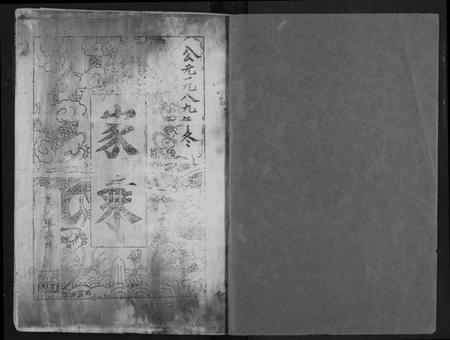 公元一九八九年冬
家乘